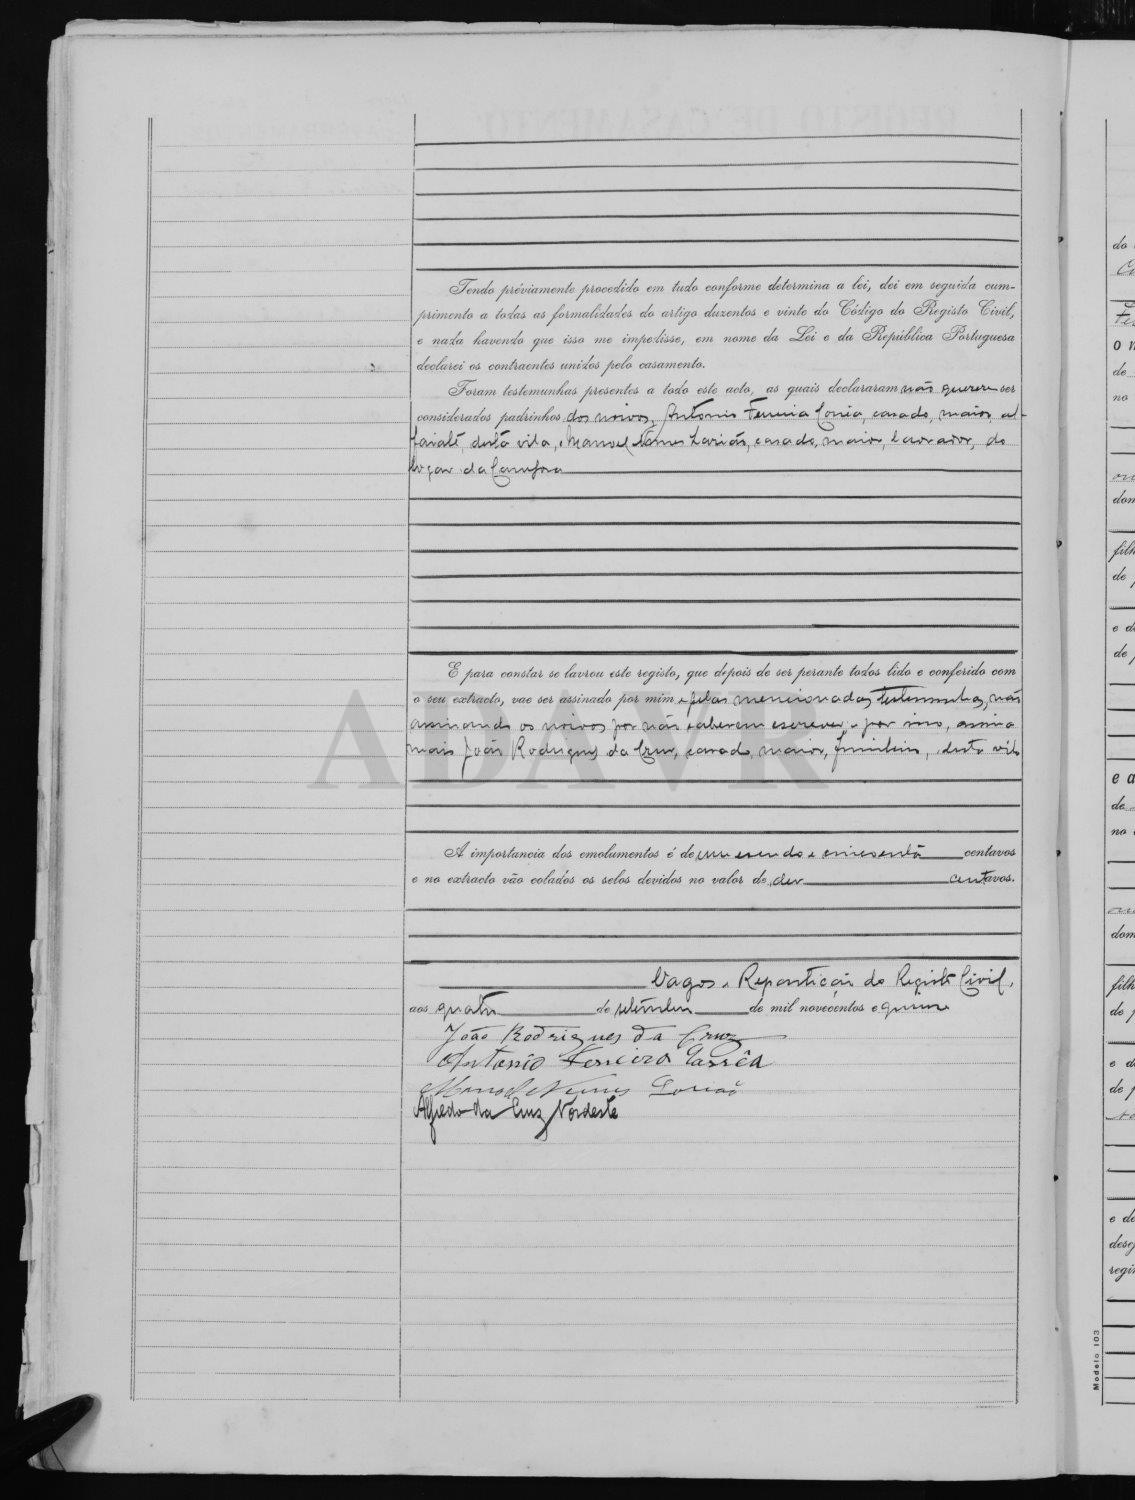 Tendo préviamente procedido em tudo conforme determina a lei, dei em seguida cum-
primento a todas as formalidades do artigo duzentos e vinte do Código do Registo Civil,
e nada havendo que isso me impedisse, em nome da Lei e da República Portuguesa
declarei os contraentes unidos pelo casamento.
Foram testemunhas presentes a todo este acto, as quais declararam não querer ser
considerados padrinhos dos noivos, António Ferreira casado, maior, al-
faiate, desta vila, Manoel Nunes casado, maior, lavrador, do
lugar da
E para constar se lavrou este registo, que depois de ser perante todos lido e conferido com
o seu extracto, vae ser assinado por mim e pelas mencionadas testemunhas, não
assinando os noivos por não saberem escrever, e por isso, assina
mais João Rodrigues da Cruz, casado, maior, desta vila
A importancia dos emolumentos é de um escudo e cincoenta centavos
e no extracto vão colados os selos devidos no valor de dez centavos.
Vagos e Repartição do Registo Civil,
aos quatro de setembro de mil novecentos e quinze
João Rodrigues da Cruz
Antonio Ferreira
Manoel Nunes
Alfredo da Cruz Nordeste
ADAVR
do
de
no
dom
filh
de
e d
de
e a
de
no
dom
filh
de
e d
de
e de
dese
regi
Modelo 103